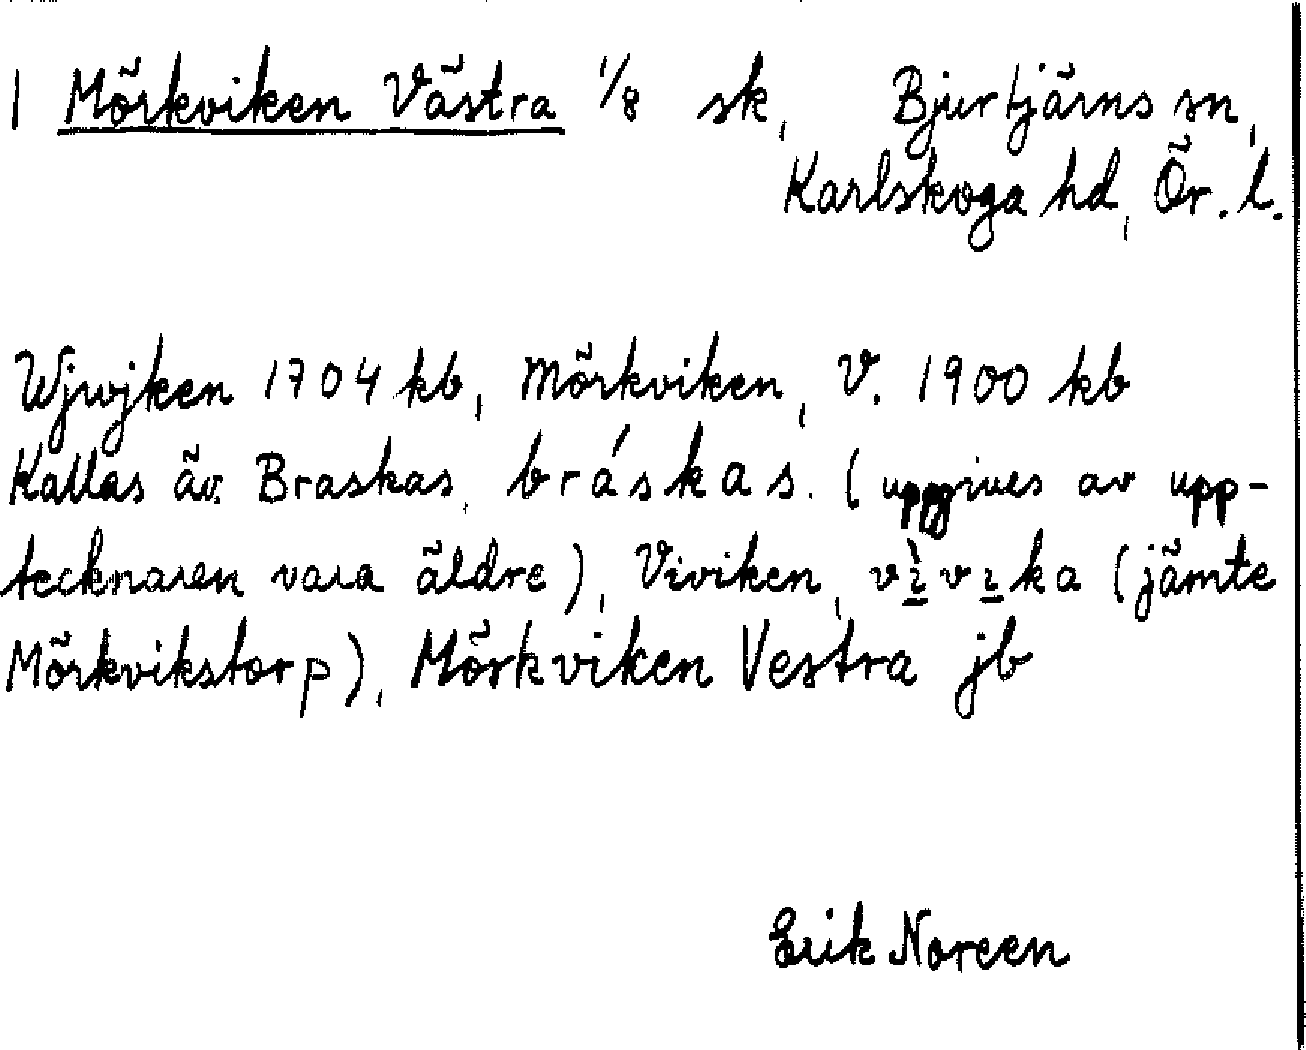 1 Mörkviken Västra 1/8 sk, Bjurtjärns sn,
Karlskoga hd, Ör. l.
Wjwjken 1704 kb, Mörkviken, V. 1900 kb
Kallas äv. Braskas, bráskas. (uppgives av upp-
tecknaren vara äldre), Viviken, vì̱vı̱ka (jämte
Mörkvikstorp), Mörkviken Vestra jb
Erik Noreen